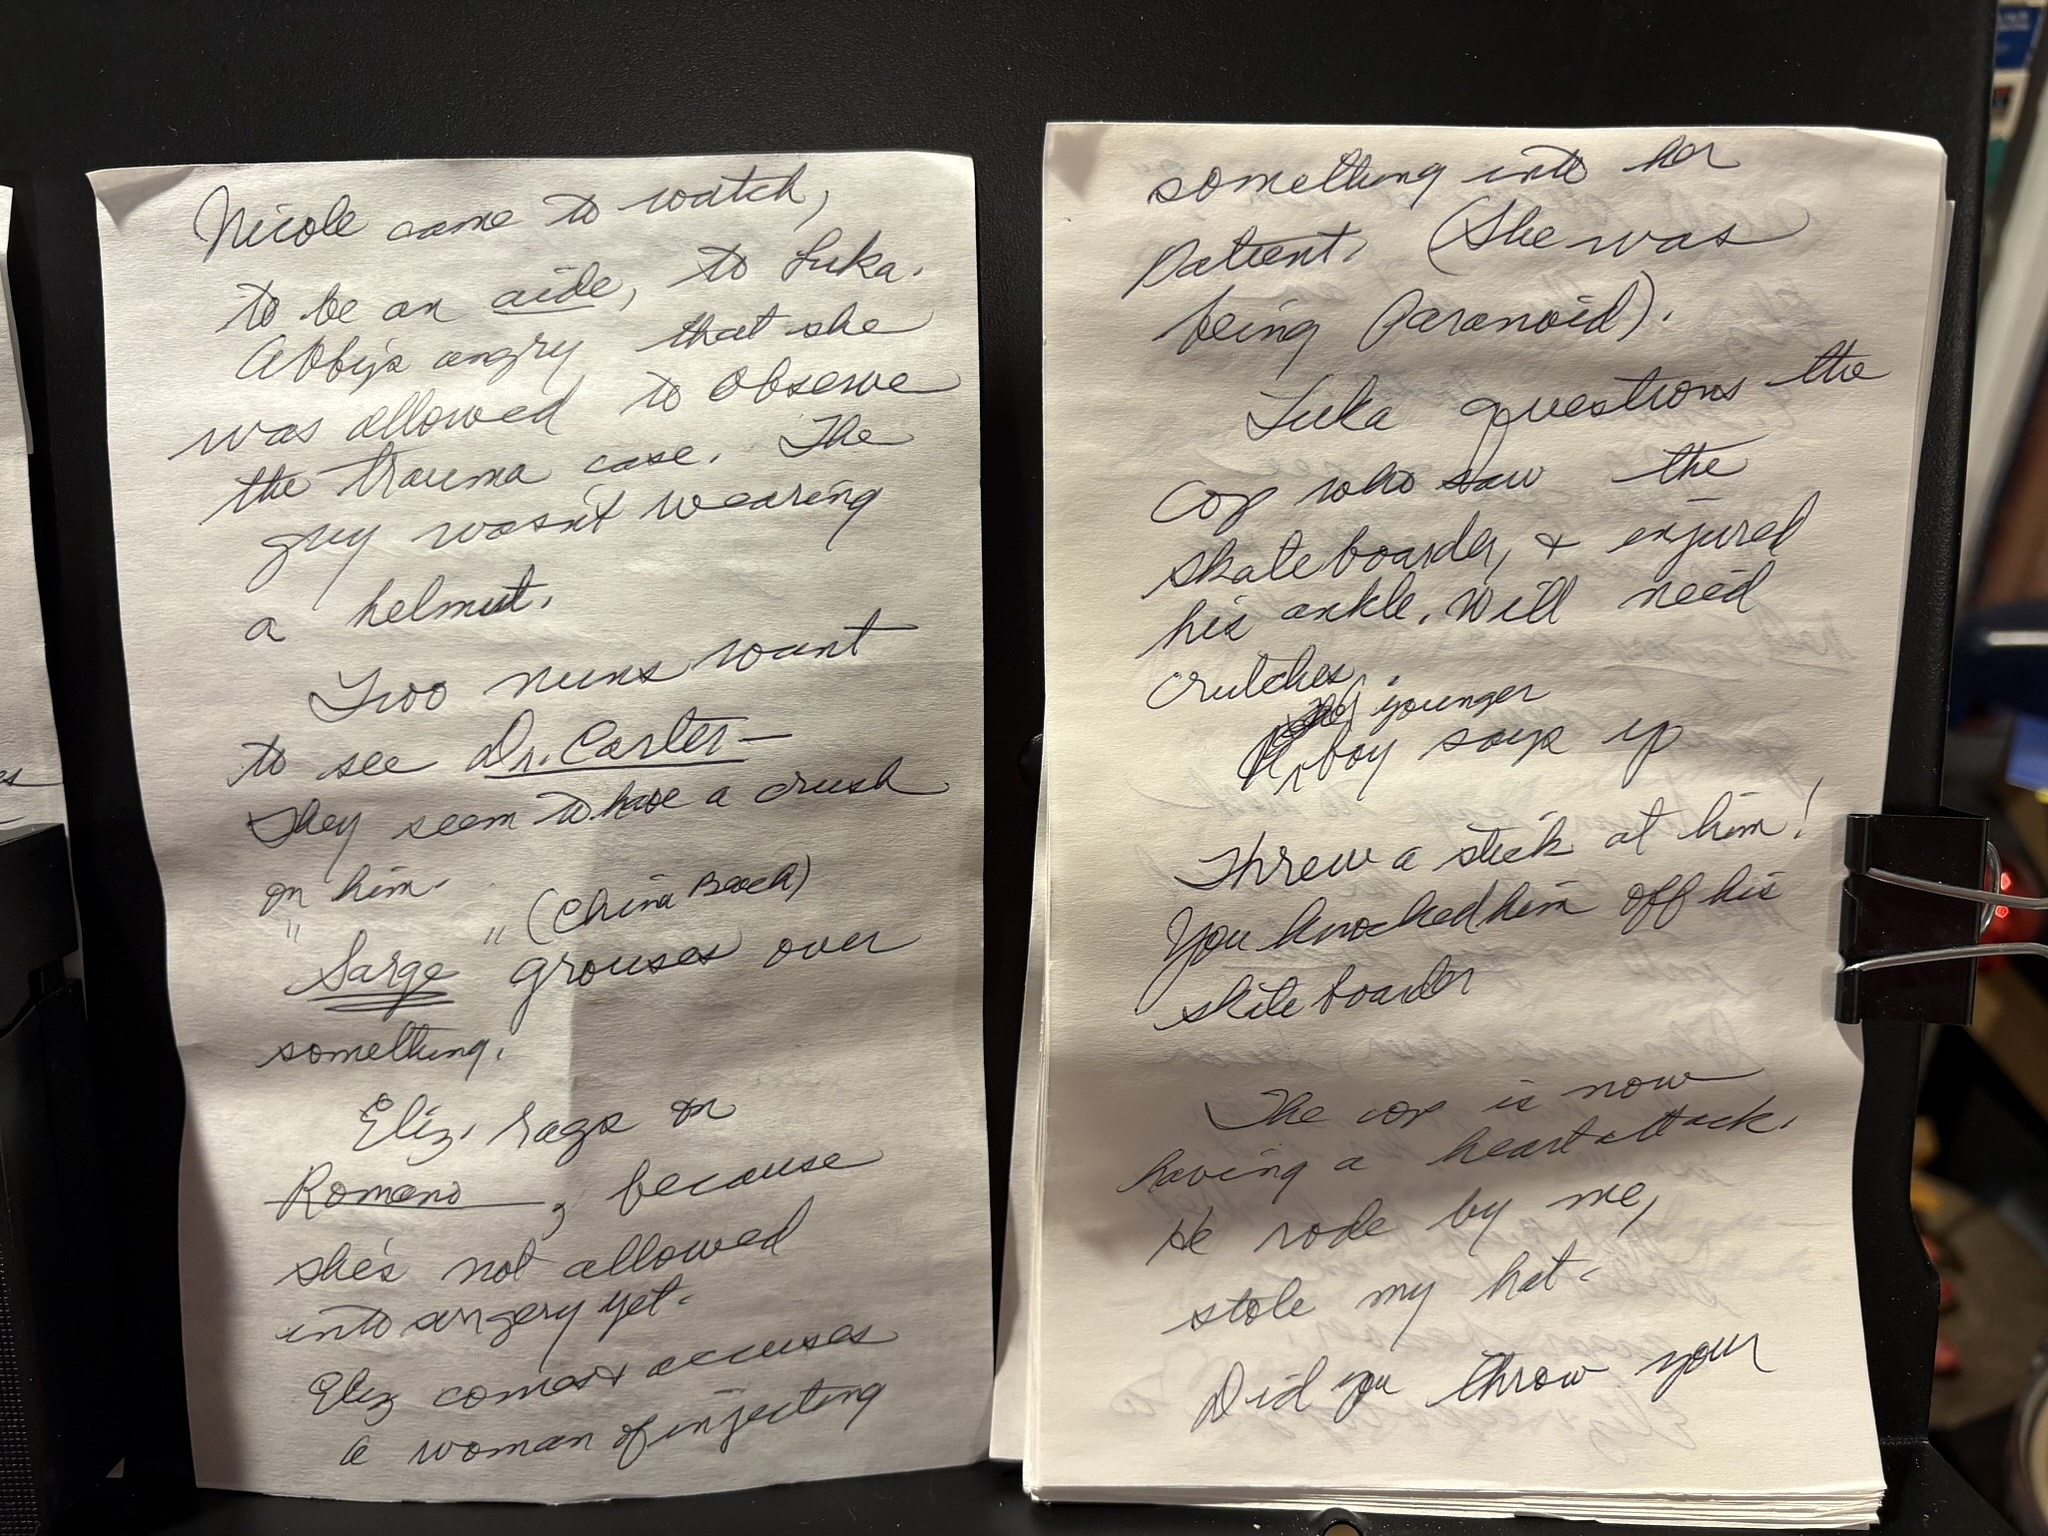 Nicole came to watch,
to be an aide, to Luka.
Abby's angry that she
was allowed to observe
the trauma case. The
guy wasn't wearing
a helmut.
Two nuns want
to see Dr. Carter—
They seem to have a crush
on him.
"Sarge" (China Beach)
grouses over
something.
Eliz. rags on
Romano, because
she's not allowed
into surgery yet.
Eliz comes & accuses
a woman of injecting
something into her
patient. (She was
being paranoid).
Luka questions the
cop who saw the
skateboarder, & injured
his ankle. Will need
crutches.
younger
boy says yo
Threw a stick at him!
You knocked him off his
skateboarder
The cop is now
having a heart attack.
He rode by me,
stole my hat-
Did you throw your